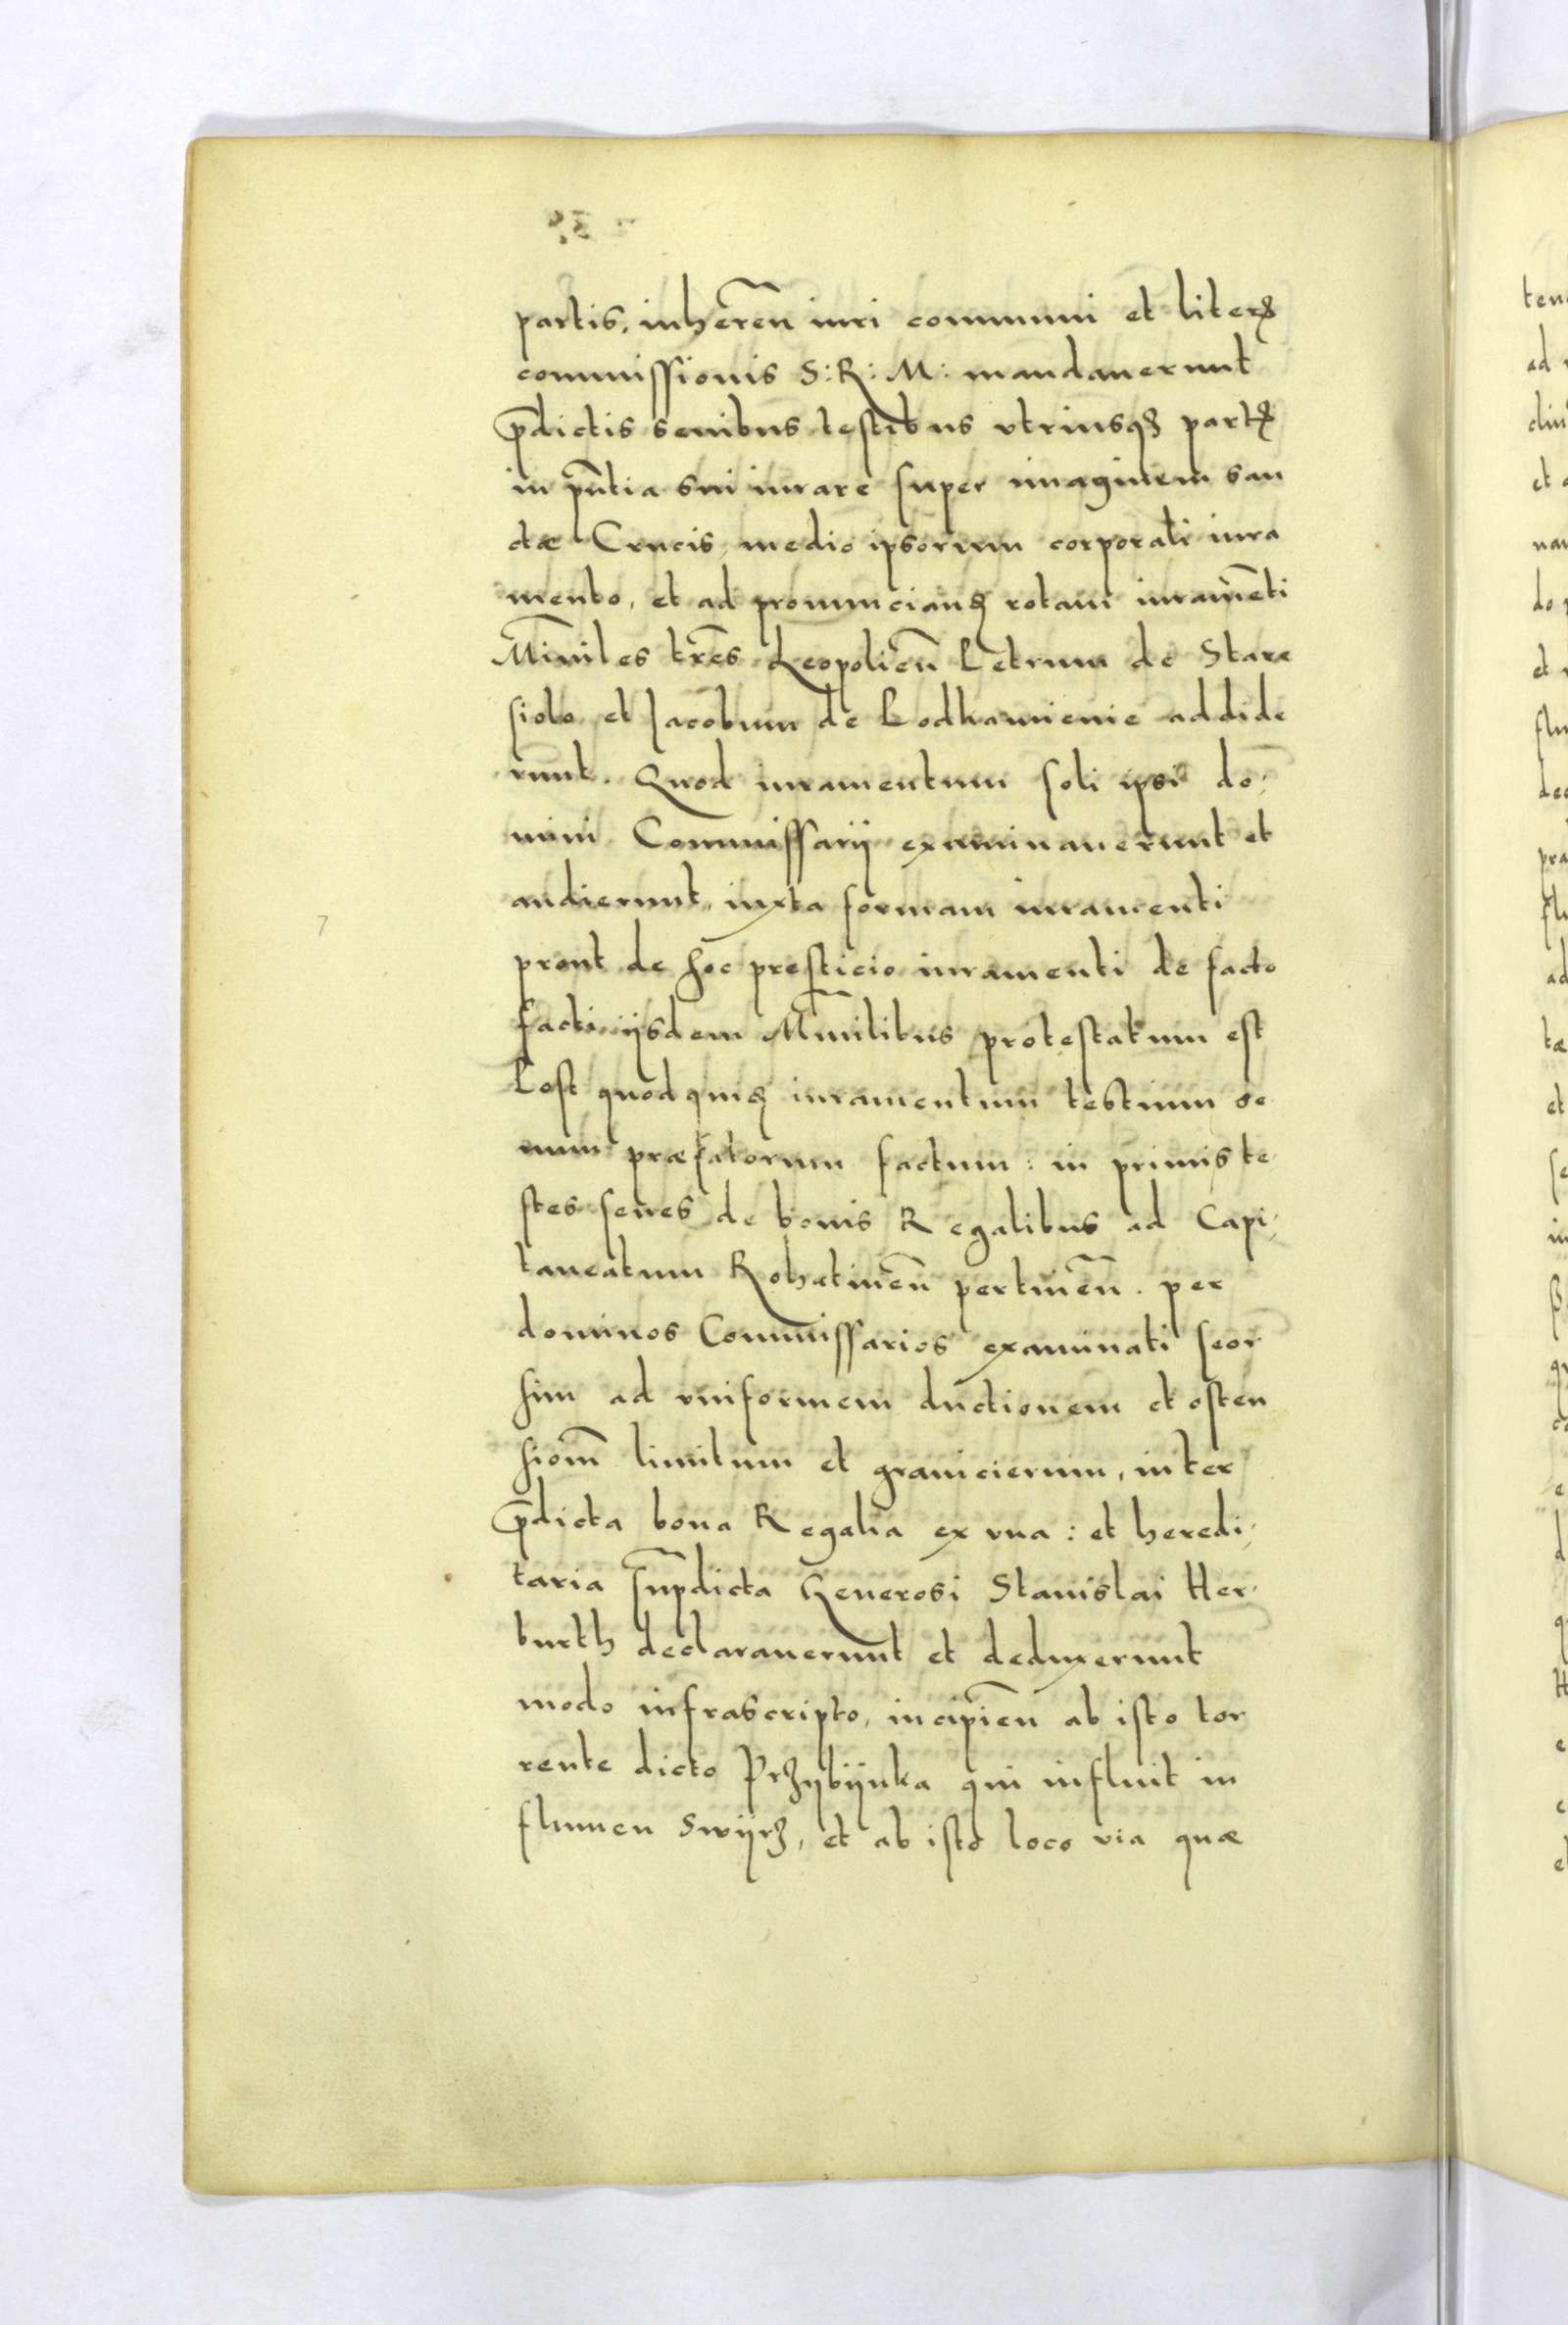 partis, inheren̄ iuri communi et literꝭ
commissionis S: R: M: mandauerunt
p̄dictis senibus testibus vtriusqꝫ partꝭ
in pn̄tia sui iurare super imaginem san
ctæ Crucis, medio ipsorum corporali iura
mento, et ad pronuncianꝭ rotam iuramēti
Mīniles trēs Leopolien̄ Petrum de Stare
siolo et Jacobum de Podkamienie addide
runt. Quod iuramentum soli ipsi do-
mini Commissarij examinauerunt et
audierunt, iuxta formam iuramenti
7
prout de hoc presticio iuramenti de facto
facti ijsdem M̄inilibus protestatum est
Post quod quidꝭ iuramentum testium se
num præfatorum factum: in primis te
stes senes de bonis Regalibus ad Capi-
taneatum Rohatinen̄ pertinen̄. per
dominos Commissarios examinati seor
sim ad vniformem ductionem et osten
siom̄ limitum et granicierum, inter
p̄dicta bona Regalia ex vna: et heredi-
taria sup̄dicta Generosi Stanislai Her-
burth declarauerunt et deduxerunt
modo infrascripto, incipien̄ ab isto tor
rente dicto Przybijnka qui influit in
flumen Swijrz, et ab isto loco via quæ